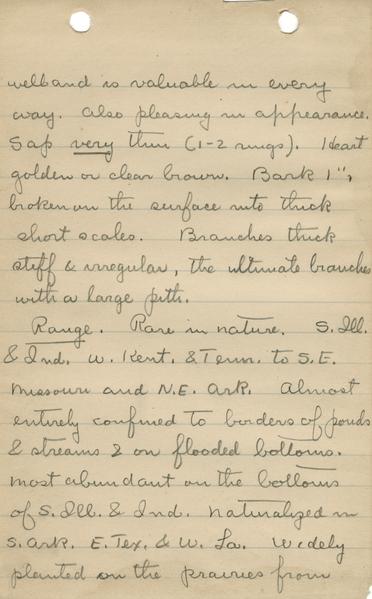 welland is valuable in every
way. Also pleasing in appearance.
Sap very thin (1-2 rings). Heart
golden or clear brown. Bark 1",
broken on the surface into thick
short scales. Branches thick
stiff & irregular, the ultimate branches
with a large pith.
Range. Rare in nature. S. Ill.
& Ind. W. Kent. & Tenn. to S.E.
Missouri and N.E. Ark. Almost
entirely confined to borders of ponds
& streams & on flooded bottoms.
Most abundant on the bottoms
of S. Ill. & Ind. Naturalized in
S. Ark. E. Tex. & W. La. Widely
planted on the prairies from